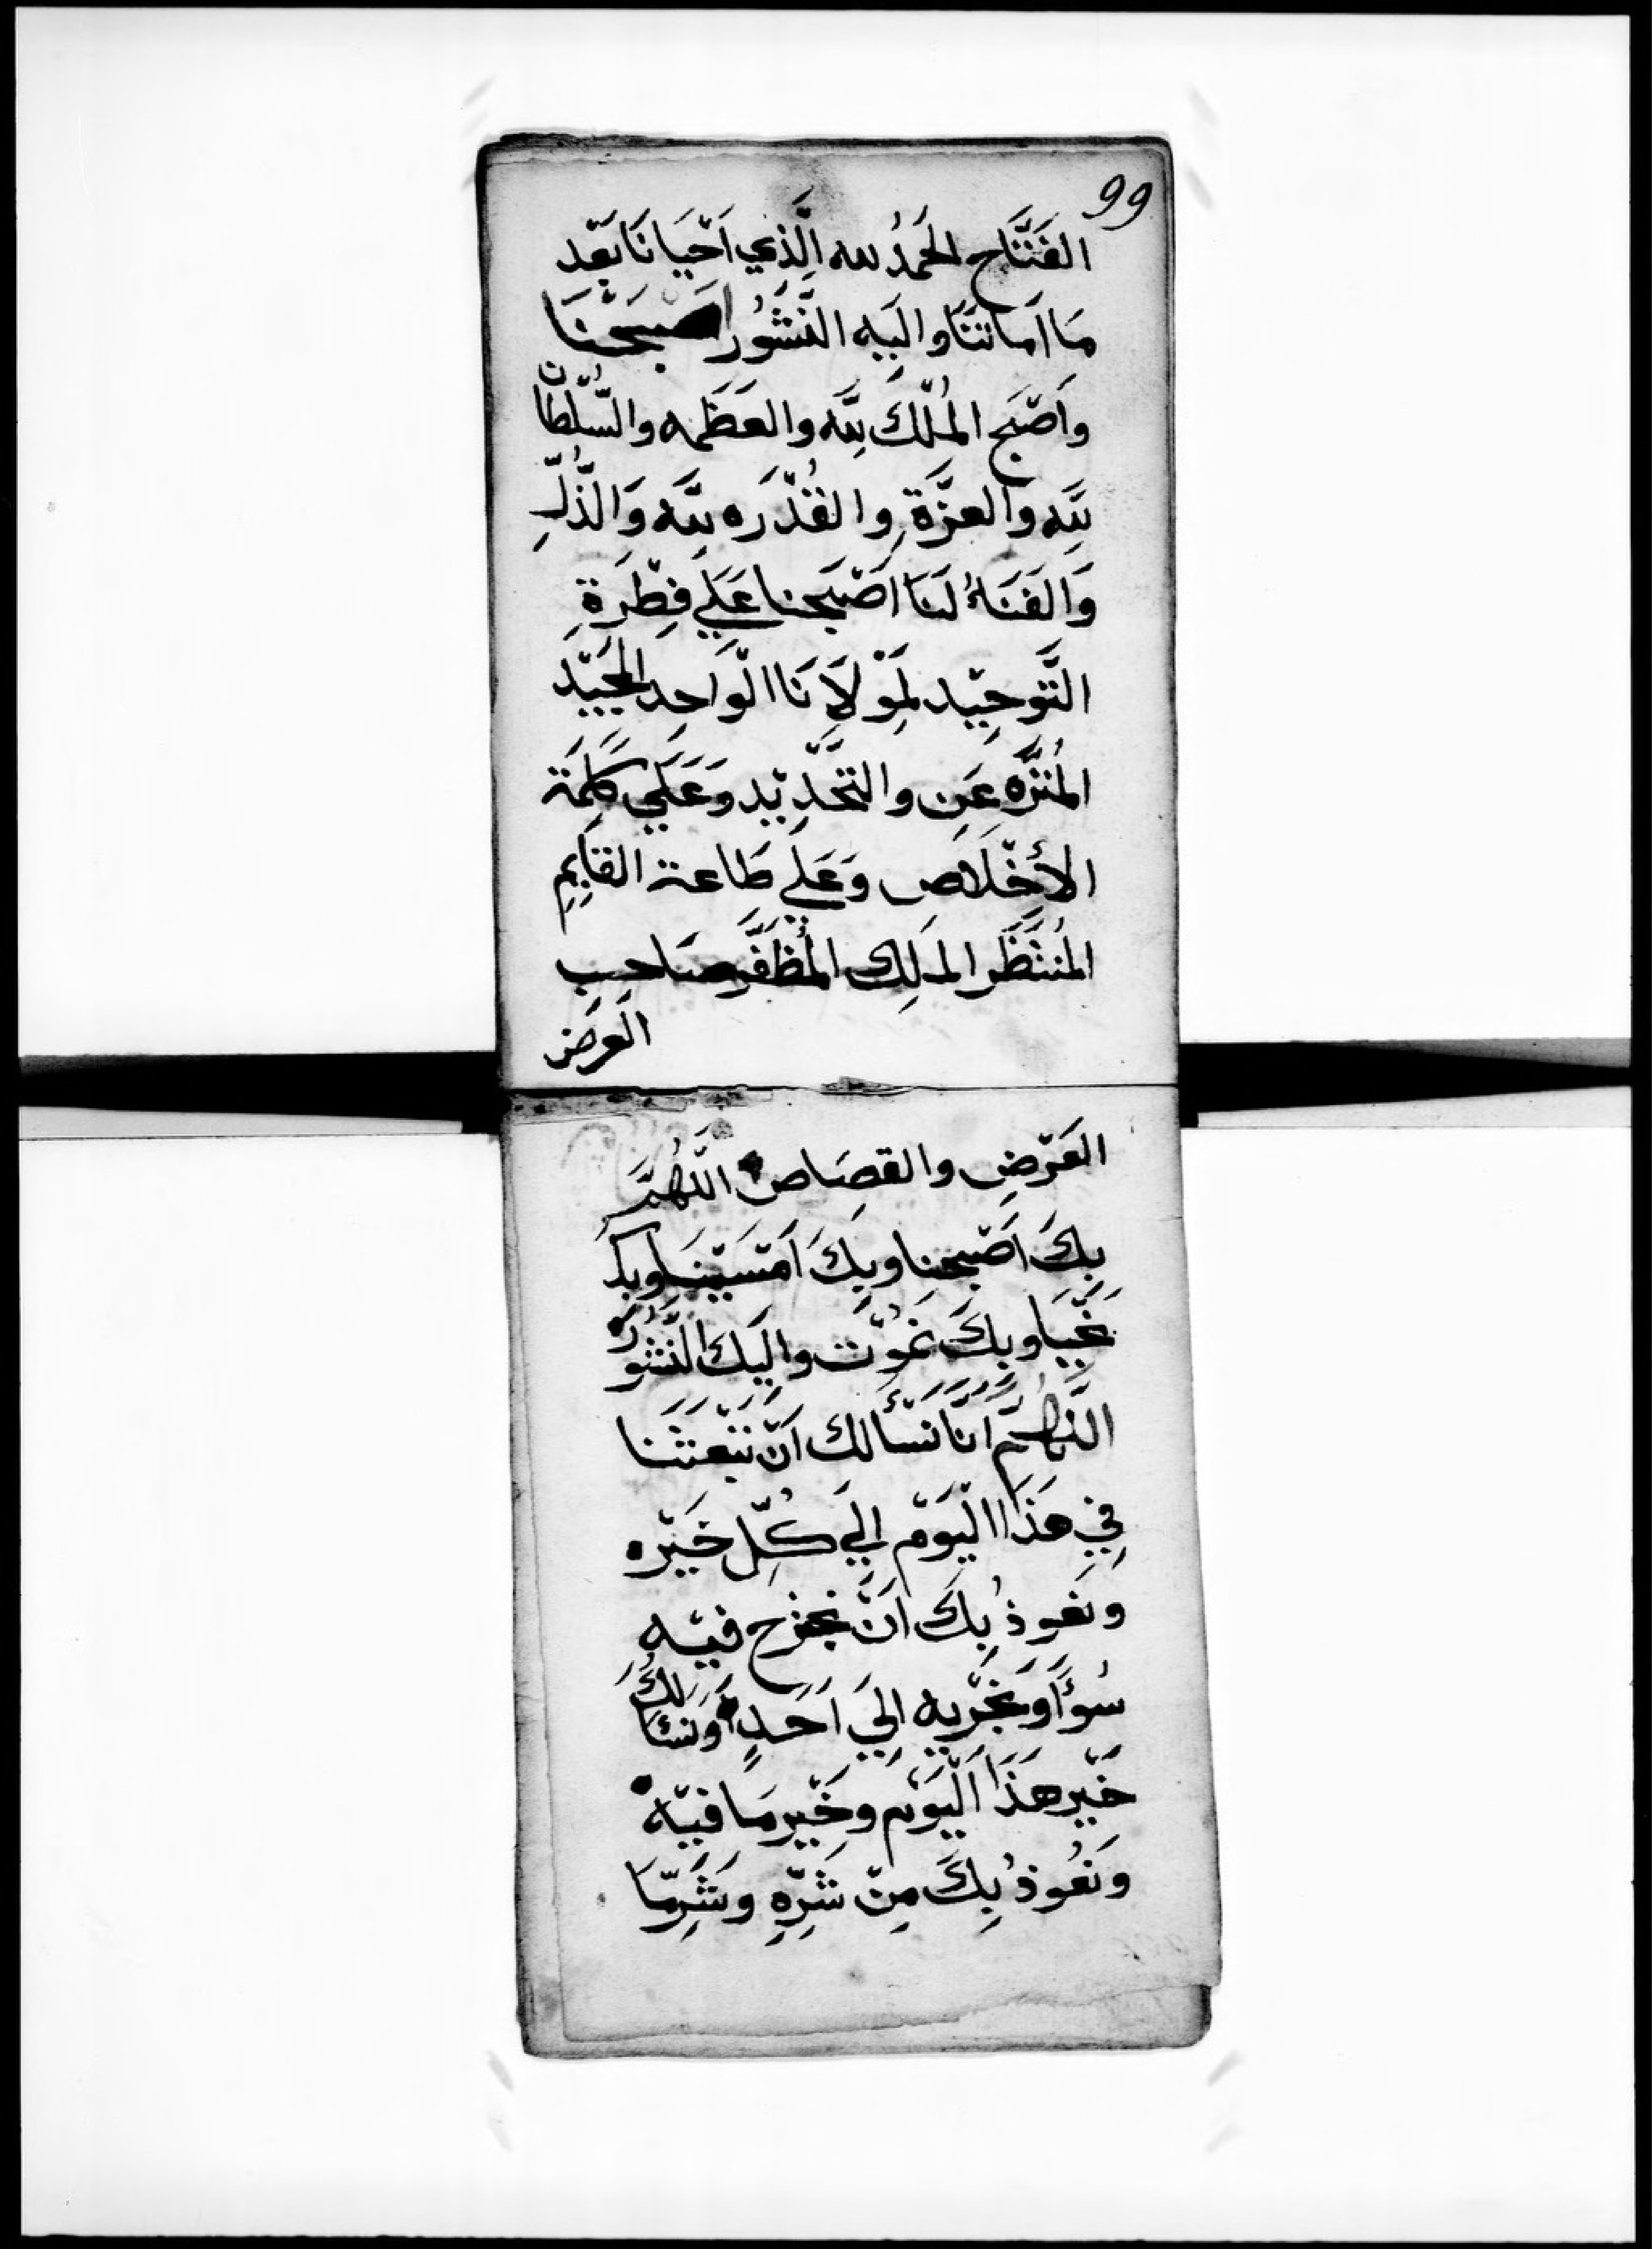 99
الفَتَّاح الحَمدُ لله الَّذي اَحْيَانَا بَعْد
مَا اَماتنَنَا وَاليَه النُّشُور اصْبَحْنَا
وَاَصْبَح المُلْكَ لِلَّه والعَظَمه والسُّلْطان
لِلَّه وَالعِزَّةِ والقُدْرَه لِلَّه وَالذُّلِّ
وَالفَنَاءُ لَنَا اَصْبَحنا عَلَي فِطْرَةِ
التَّوحِيْد لِمَوْلاَنَا الْوَاحِد المجَيْد
المُنزَّه عَن والتَّحْدِيْد وَعَلَي كَلِمَة
الأخْلاَص وَعَلي طَاعة القَايِمِ
المُنتَظَر المَلِك المُظَفَّر صَاحِب
العَرض
العَرْضِ والقصَاص اللَّهُمَّ
بِكَ اَصْبحنا وبِكَ اَمْسَيْنَا وبِكَ
نَحْيَا وبِكَ نَمُوْت واِلَيكَ النُّشُورُ
اللَّهُمَّ اَنَّا نَسْألك اَنْ تَبْعَثَنَا
فِي هَذَا الْيَوْم اِلَي كُلِّ خَيْر
ونَعوذُ بِكَ اَنْ نجترح فيْه
سُوْأً اَو نَجُرّ بِه اِلَي اَحَدٍ وَنَسْأَلُكَ
خَيْر هَذَا الْيَوْم وخَيْر مَا فيْه
ونَعُوذُ بِكَ مِنْ شَرِّهِ وشَرِّ مَّا